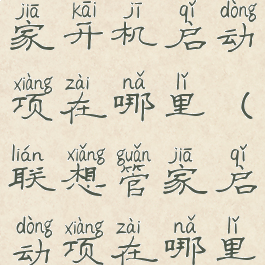 jiā kāi jī qǐ dòng
家开机启动
xiàng zài nǎ lǐ
项在哪里（
lián xiǎng guǎn jiā qǐ
联想管家启
dòng xiàng zài nǎ lǐ
动项在哪里